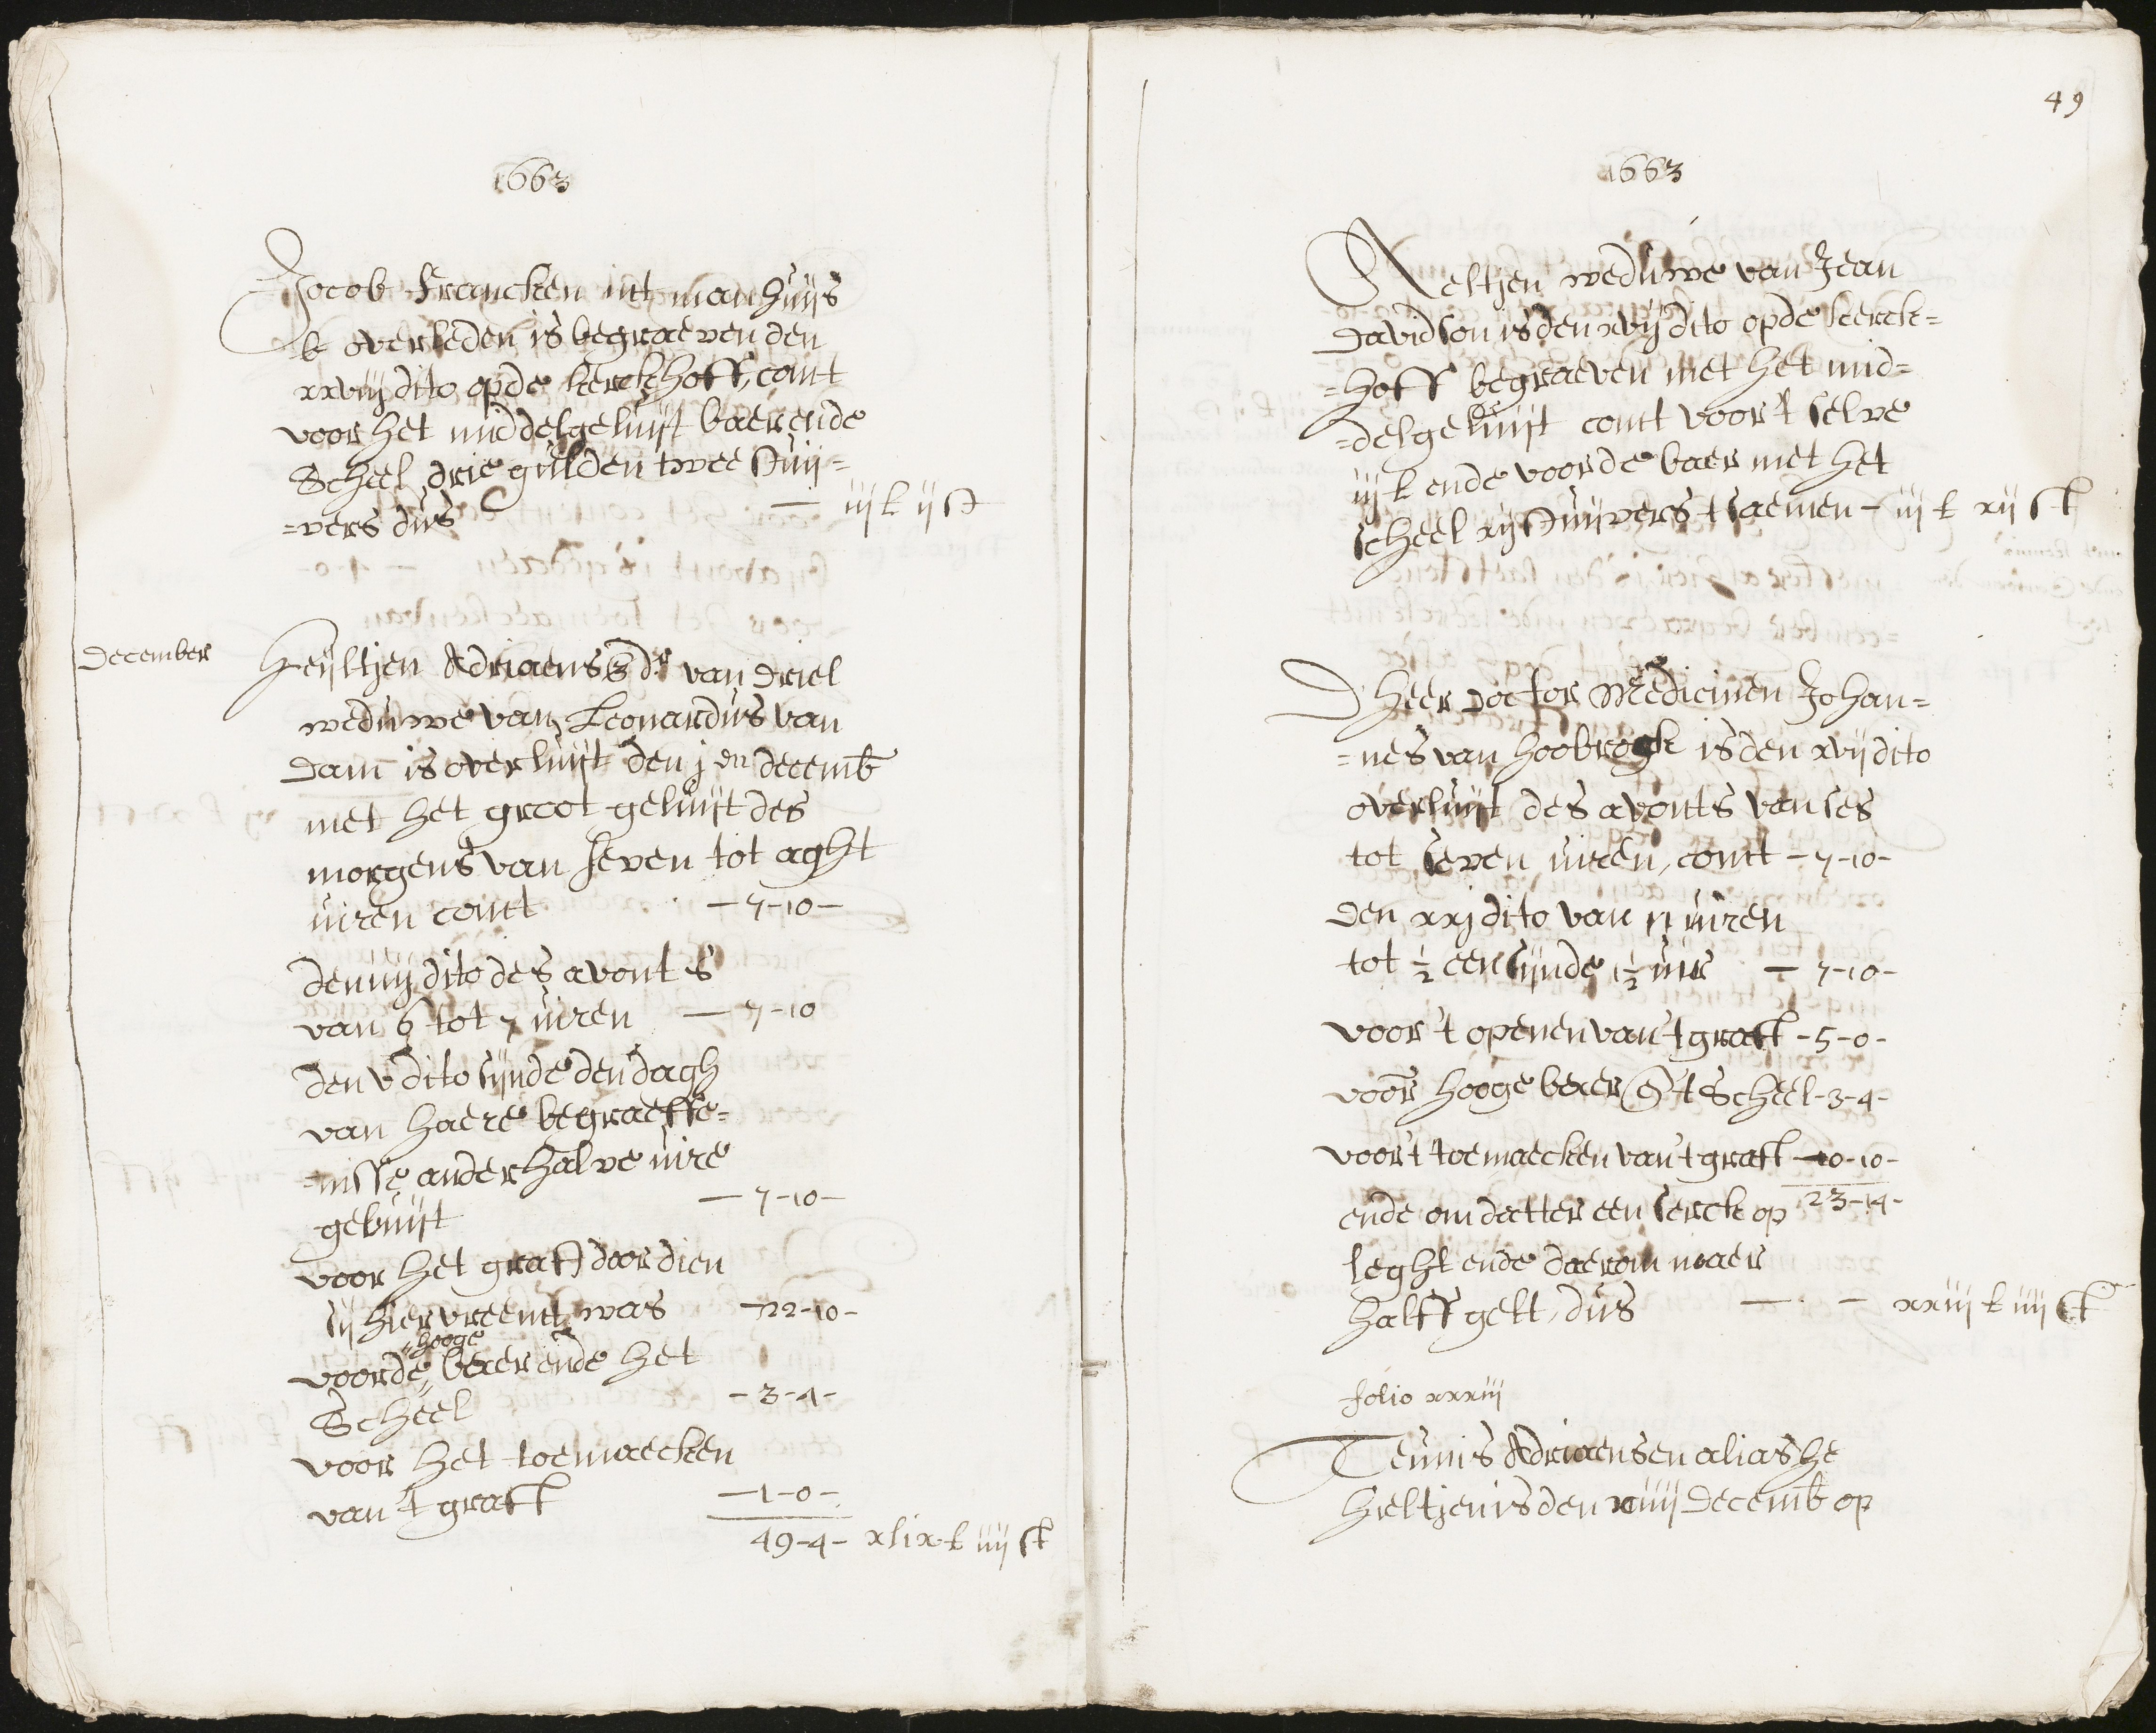 1663
Jocob Francken int manhuijs
overleden is begraeven den
xxviij dito opde kerckhoff, comt
voor het middelgeluijt baer ende
Scheel drie gulden twee stuij=
=vers dus — iij £ ij st
December
Heijltjen Adriaens dr van Driel
weduwe van Leonardus van
Dam is overluijt den j en decemb
met het groot geluijt des
morgens van seven tot aght
uiren comt — 7-10 —
den iiij dito des avonts
van 6 tot 7 uiren — 7-10
den v dito sijnde den dagh
van haere begraeffe=
=nisse anderhalve uire
geluijt — 7-10 —
voor het graff door dien
sij hier vreemt was — 22-10-
voorde hooge baer ende het
Scheel - 3-4-
voor het toemaecken
van 't graft — 1-0-
49-4- xlix £ iiij st
49
1663
Aeltjen weduwe van Jean
Davidson is den xvij dito opde kerck=
=hoff begraeven met het mid=
=delgeluijt comt voor 't selve
iij £ ende voor de baer met het
scheel xij stuijvers tsaemen - iij £ xij st
D heer Doctor Medicinen Johan=
=nes van Hoobrogk is den xvij dito
overluijt des avonts van ses
tot seven uiren, comt - 7-10-
den xxj dito van 11 uiren
tot ½ een sijnde 1½ uir — 7-10-
voor 't openen van 't graft - 5-0-
voor hooge baer en 't Scheel - 3-4-
voor 't toemaecken van 't graft - 0-10-
23-14-
ende om datter een serck op
leght ende daerom maer
halff gelt, dus — — xxiij £ iiij st
folio xxxiij
Teunis Adriaensen alias he
hieltjen is den xiiij decemb op